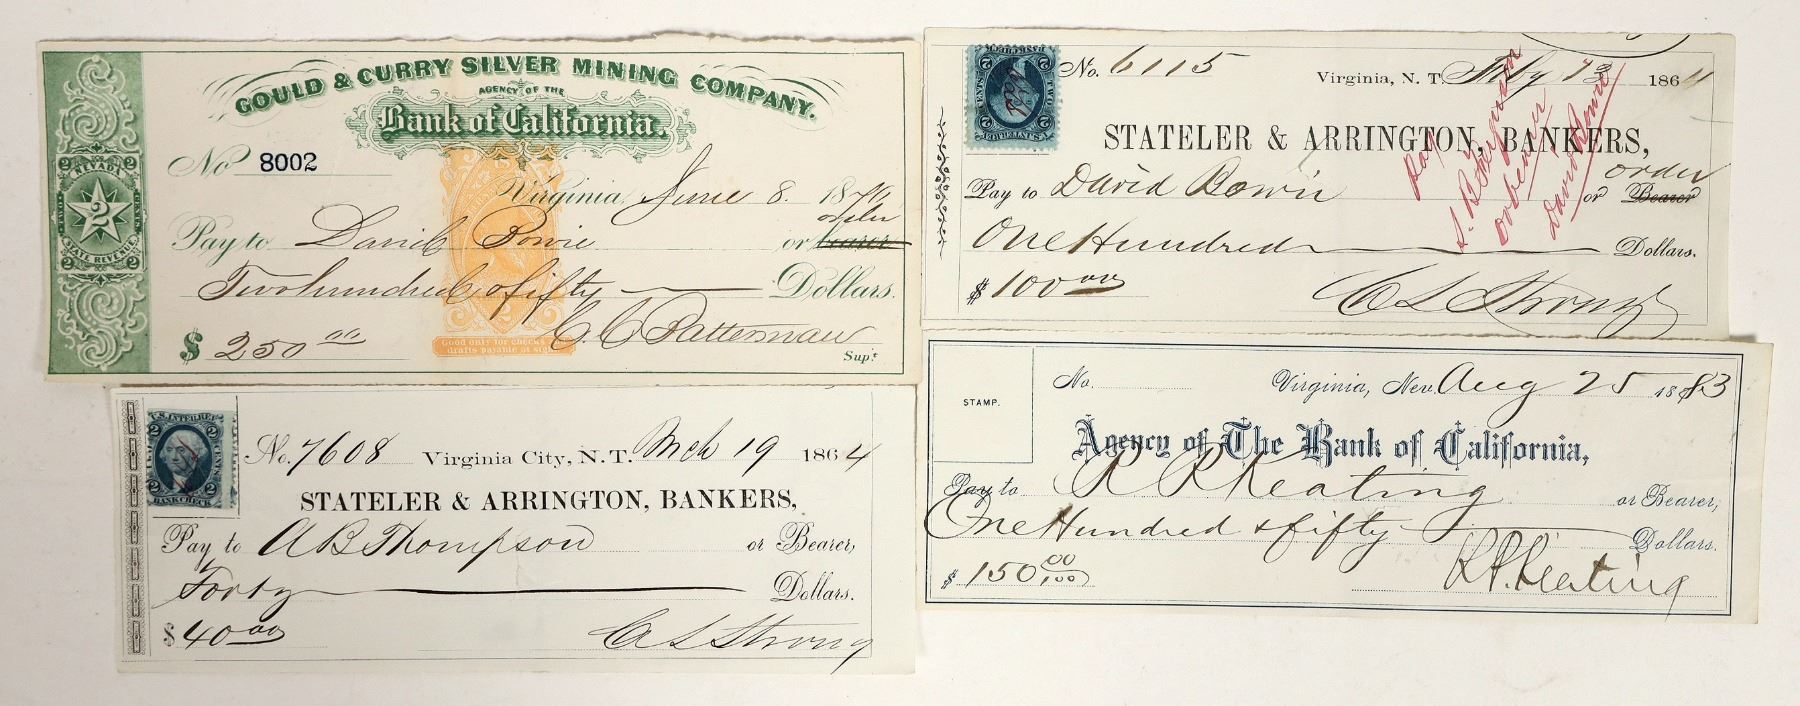 GOULD & CURRY SILVER MINING COMPANY.
AGENCY OF THE
Bank of California.
No 8002
Virginia June 8. 18
order
Pay to David Bowie or bearer
Two hundred & fifty Dollars.
$ 250 00
C C Batterman
Supt.
2 NEVADA 2
TWO CENTS
2
STATE REVENUE
2 2
Good only for checks &
drafts payable at sight.
U.S. INTER. REV.
2 2
TWO CENTS
2 BANK CHECK 2
No. 6115 Virginia, N. T. July 13 1864
STATELER & ARRINGTON, BANKERS,
order
Pay to David Bowie or Bearer
One Hundred Dollars.
$ 100.00
C L Strong
Pay
or bearer
David Bowie
U.S. INTER. REV.
2 2
2 BANK CHECK 2
No. 7608 Virginia City, N. T. Mch 19 1864
STATELER & ARRINGTON, BANKERS,
Pay to A B Thompson or Bearer,
Forty Dollars.
$ 40.00
C L Strong
STAMP.
No. Virginia, Nev. Aug 25 1883
Agency of The Bank of California,
Pay to R R Keating or Bearer,
One Hundred & fifty Dollars.
$ 150 00/100
R R Keating